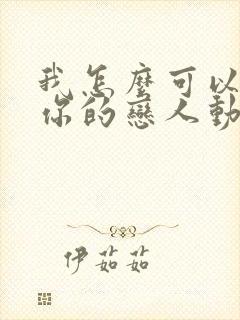 我怎麼可以
你的戀人動
伊茹茹